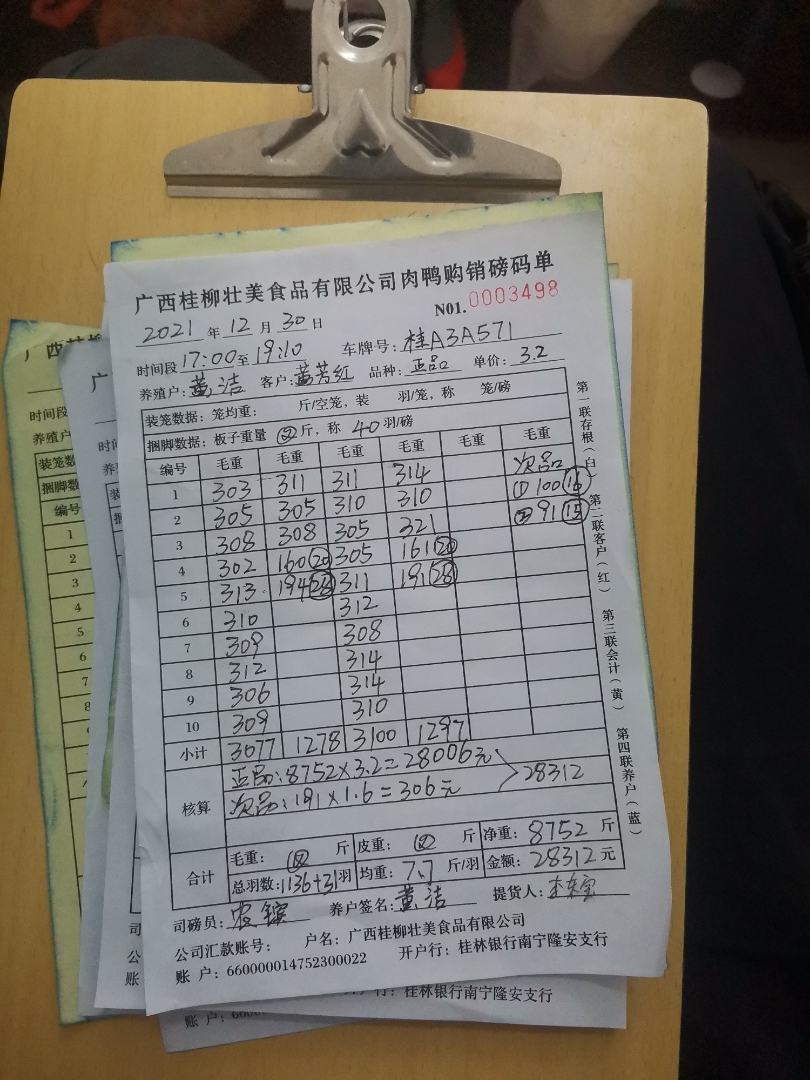 广西桂柳壮美食品有限公司肉鸭购销磅码单
2021 年 12 月 30 日 N01. 0003498
时间段 17:00 至 19:10 车牌号: 桂A3A571
养殖户: 黄洁 客户: 黄芳红 品种: 正品 单价: 3.2
装笼数据: 笼均重: 斤/空笼, 装 羽/笼, 称 笼/磅
捆脚数据: 板子重量 斤, 称 40 羽/磅
编号 毛重 毛重 毛重 毛重 毛重 毛重
次品
1 303 311 311 314 ① 100 16
2 305 305 310 310 ② 91 15
3 308 308 305 321
4 302 160 20 305 161 20
5 313 194 28 311 191 28
6 310 312
7 309 308
8 312 314
9 306 314
10 309 310
小计 3077 1278 3100 1297
核算 正品: 8752×3.2=28006元
次品: 191×1.6=306元 28312
合计 毛重: 斤 皮重: 斤 净重: 8752 斤
总羽数: 1136+31 羽 均重: 7.7 斤/羽 金额: 28312 元
司磅员: 养户签名: 黄洁 提货人:
公司汇款账号: 户名: 广西桂柳壮美食品有限公司
账 户: 660000014752300022 开户行: 桂林银行南宁隆安支行
第一联存根(白) 第二联客户(红) 第三联会计(黄) 第四联养户(蓝)
时间段
养殖户
装笼数
捆脚数
编号
1
2
3
4
5
6
7
8
9
10
小计
行: 桂林银行南宁隆安支行
账 户: 6600